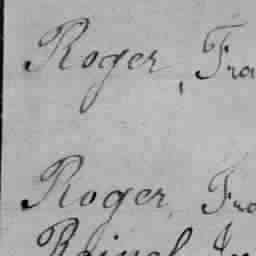 Roger, Fra
Roger, Fra